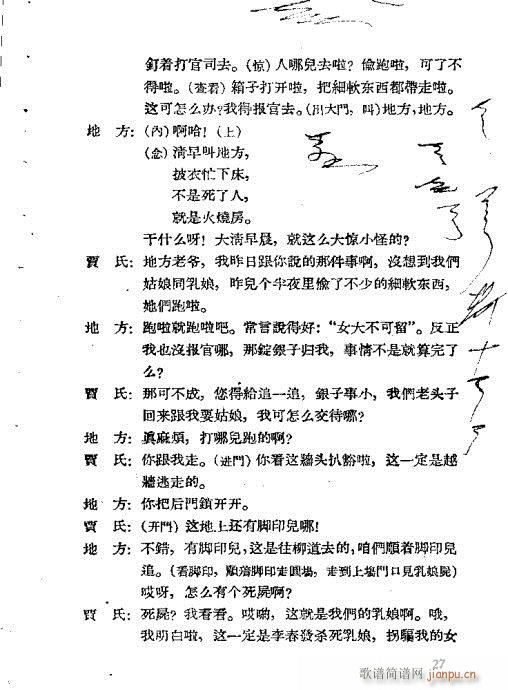 釘着打官司去。(惊)人哪兒去啦？偸跑啦，可了不
得啦。(查看)箱子打开啦，把細軟东西都帶走啦。
这可怎么办？我得报官去。(出大門，叫)地方，地方。
地　方：(內)啊哈！(上)
(念)清早叫地方，
披衣忙下床，
不是死了人，
就是火燒房。
干什么呀！大清早晨，就这么大惊小怪的？
賈　氏：地方老爷，我昨日跟你說的那件事啊，沒想到我們
姑娘同乳娘，昨兒个半夜里偸了不少的細軟东西，
她們跑啦。
地　方：跑啦就跑啦吧。常言說得好：“女大不可留”。反正
我也沒报官哪，那錠銀子归我，事情不是就算完了
么？
賈　氏：那可不成，您得給追一追，銀子事小，我們老头子
回来跟我要姑娘，我可怎么交待哪？
地　方：眞麻煩，打哪兒跑的啊？
賈　氏：你跟我走。(进門)你看这牆头扒豁啦，这一定是越
牆逃走的。
地　方：你把后門鎖开开。
賈　氏：(开門)这地上还有脚印兒哪！
地　方：不錯，有脚印兒，这是往柳道去的，咱們順着脚印兒
追。(看脚印，順着脚印走圓場，走到上場門口見乳娘屍)
哎呀，怎么有个死屍啊？
賈　氏：死屍？我看看。哎喲，这就是我們的乳娘啊。哦，
我明白啦，这一定是李春發杀死乳娘，拐騙我的女
27
歌谱简谱网
jianpu.cn